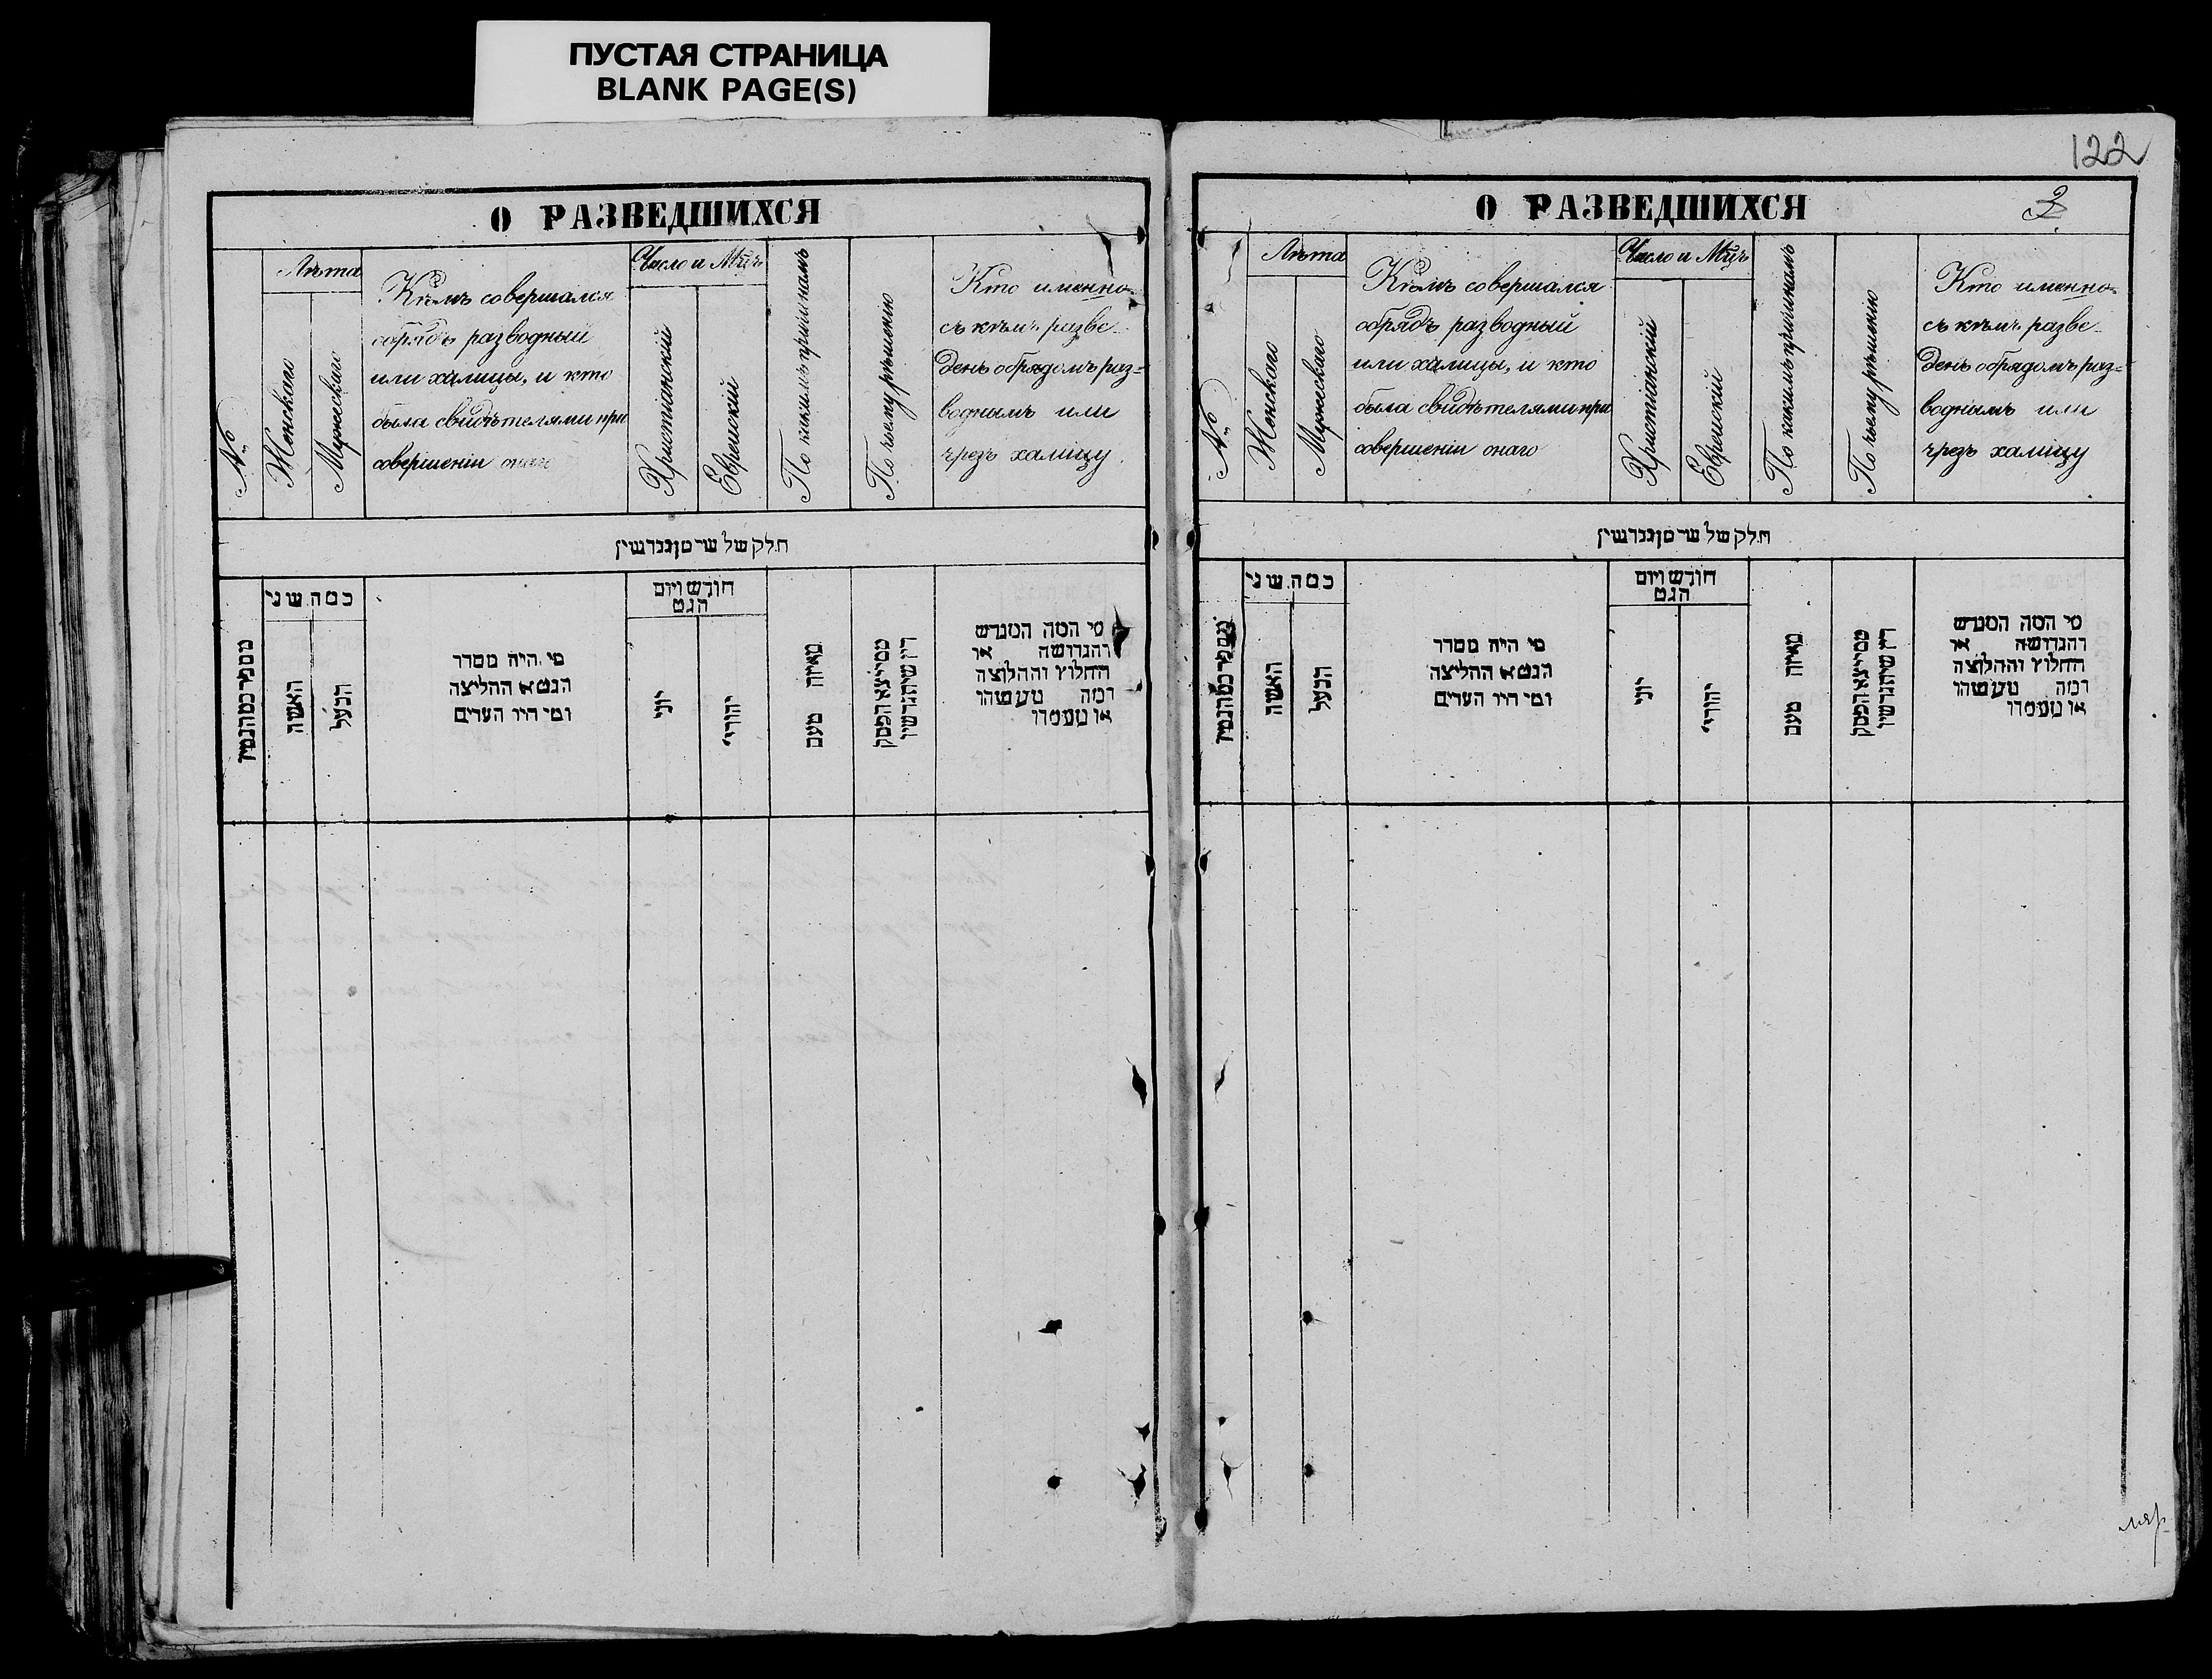 ПУСТАЯ СТРАНИЦА
BLANK PAGE(S)
О РАЗВЕДШИХСЯ
№
Лѣта
Женскаго
Мужескаго
Кѣмъ совершался
обрядъ разводный
или халицы, и кто
была свидѣтелями при
совершеніи онаго
Число и Мцъ
Христіанскій
Еврейскій
По какимъ причинамъ
По чьему рѣшенію
Кто именно
съ кѣмъ разве-
денъ обрядомъ раз-
воднымъ или
чрезъ халицу
חלק של
כמה שני
האשה
הבעל
מי היה מסדר
הגט או החליצה
ומי היו העדים
חודש ויום
הגט
יוני
יהודי
מאיזה טעם
ממי יצא הפסק
דין שיתגרשו
מי המה המגרש
והגרושה או
החלוץ והחלוצה
122
О РАЗВЕДШИХСЯ
3
№
Лѣта
Женскаго
Мужескаго
Кѣмъ совершался
обрядъ разводный
или халицы, и кто
была свидѣтелями при
совершеніи онаго
Число и Мцъ
Христіанскій
Еврейскій
По какимъ причинамъ
По чьему рѣшенію
Кто именно
съ кѣмъ разве-
денъ обрядомъ раз-
воднымъ или
чрезъ халицу
חלק של
כמה שני
האשה
הבעל
מי היה מסדר
הגט או החליצה
ומי היו העדים
חודש ויום
הגט
יוני
יהודי
מאיזה טעם
ממי יצא הפסק
דין שיתגרשו
מי המה המגרש
והגרושה או
החלוץ והחלוצה